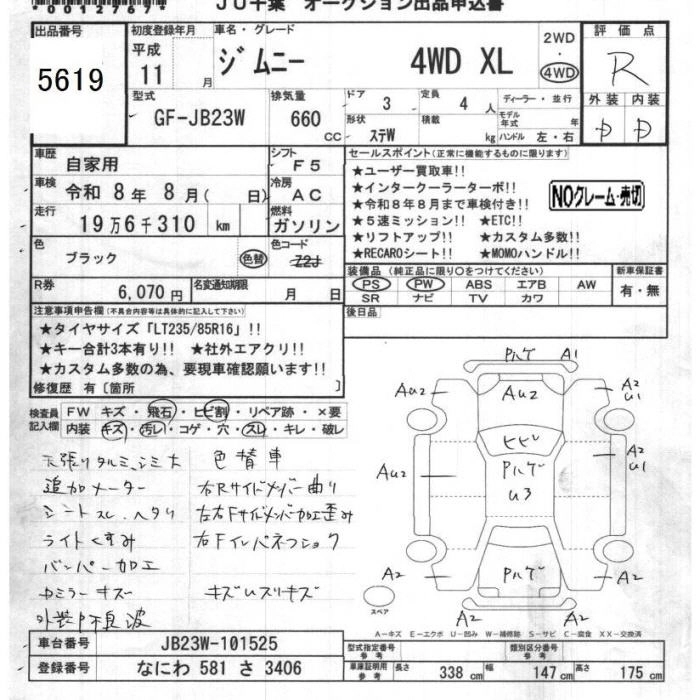 *00127697*
JU千葉 オークション出品申込書
出品番号
5619
初度登録年月
平成
11 月
車名・グレード
ジムニー 4WD XL
2WD
・
4WD
評価点
R
外装 内装
D D
型式
GF-JB23W
排気量
660
cc
ドア
3
定員
4 人
形状
ステW
積載
kg
ディーラー・並行
モデル年式 年
ハンドル 左・右
車歴
自家用
シフト
F5
車検
令和 8年 8月( 日)
冷房
AC
走行
19万6千310 km
燃料
ガソリン
色
ブラック
色替
色コード
ZZJ
R券
6,070円
名変通知期限
月 日
セールスポイント(正常に機能するものに限ります)
★ユーザー買取車!!
★インタークーラーターボ!!
★令和8年8月まで車検付き!!
★5速ミッション!! ★ETC!!
★リフトアップ!! ★カスタム多数!!
★RECAROシート!! ★MOMOハンドル!!
NOクレーム・売切
装備品(純正品に限り○をつけてください)
PS PW ABS エアB AW
SR ナビ TV カワ
新車保証書
有・無
後日品
注意事項申告欄(不具合内容等は具体的に記入して下さい)
★タイヤサイズ「LT235/85R16」!!
★キー合計3本有り!! ★社外エアクリ!!
★カスタム多数の為、要現車確認願います!!
修復歴 有〔箇所 〕
検査員記入欄
FW キズ・飛石・ヒビ割・リペア跡・×要
内装 キズ・汚レ・コゲ・穴・スレ・キレ・破レ
天張りタルミ、シミ大 色替車
追加メーター 右Rサイドメンバー曲り
シートスレ、ヘタリ 左右Fサイドメンバー加工歪み
ライトくすみ 右Fインパネつショック
バンパー加工
カミラーキズ キズUスリキズ
外装P不良 波
Pハゲ A1
AU2 AU2 A2
U1
ヒビ
AU2 Pハゲ A2
U3 U1
A2 Pハゲ A2
A2 A2
スペア
A-キズ E-エクボ U-凹み W-補修跡 S-サビ C-腐食 XX-交換済
車台番号
JB23W-101525
登録番号
なにわ 581 さ 3406
型式指定番号
参考
類別区分番号
参考
車庫証明用
参考
長さ 338 cm 幅 147 cm 高さ 175 cm